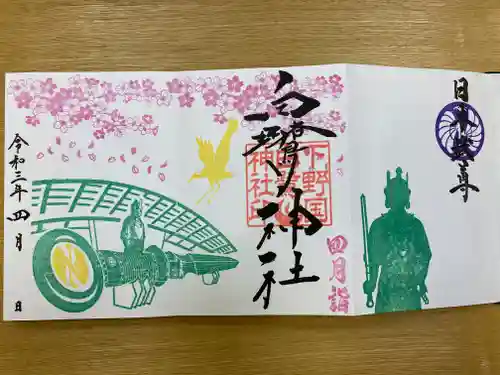 日本武尊
四月詣
白鷺神社
下野国
神社印
令和三年四月 日